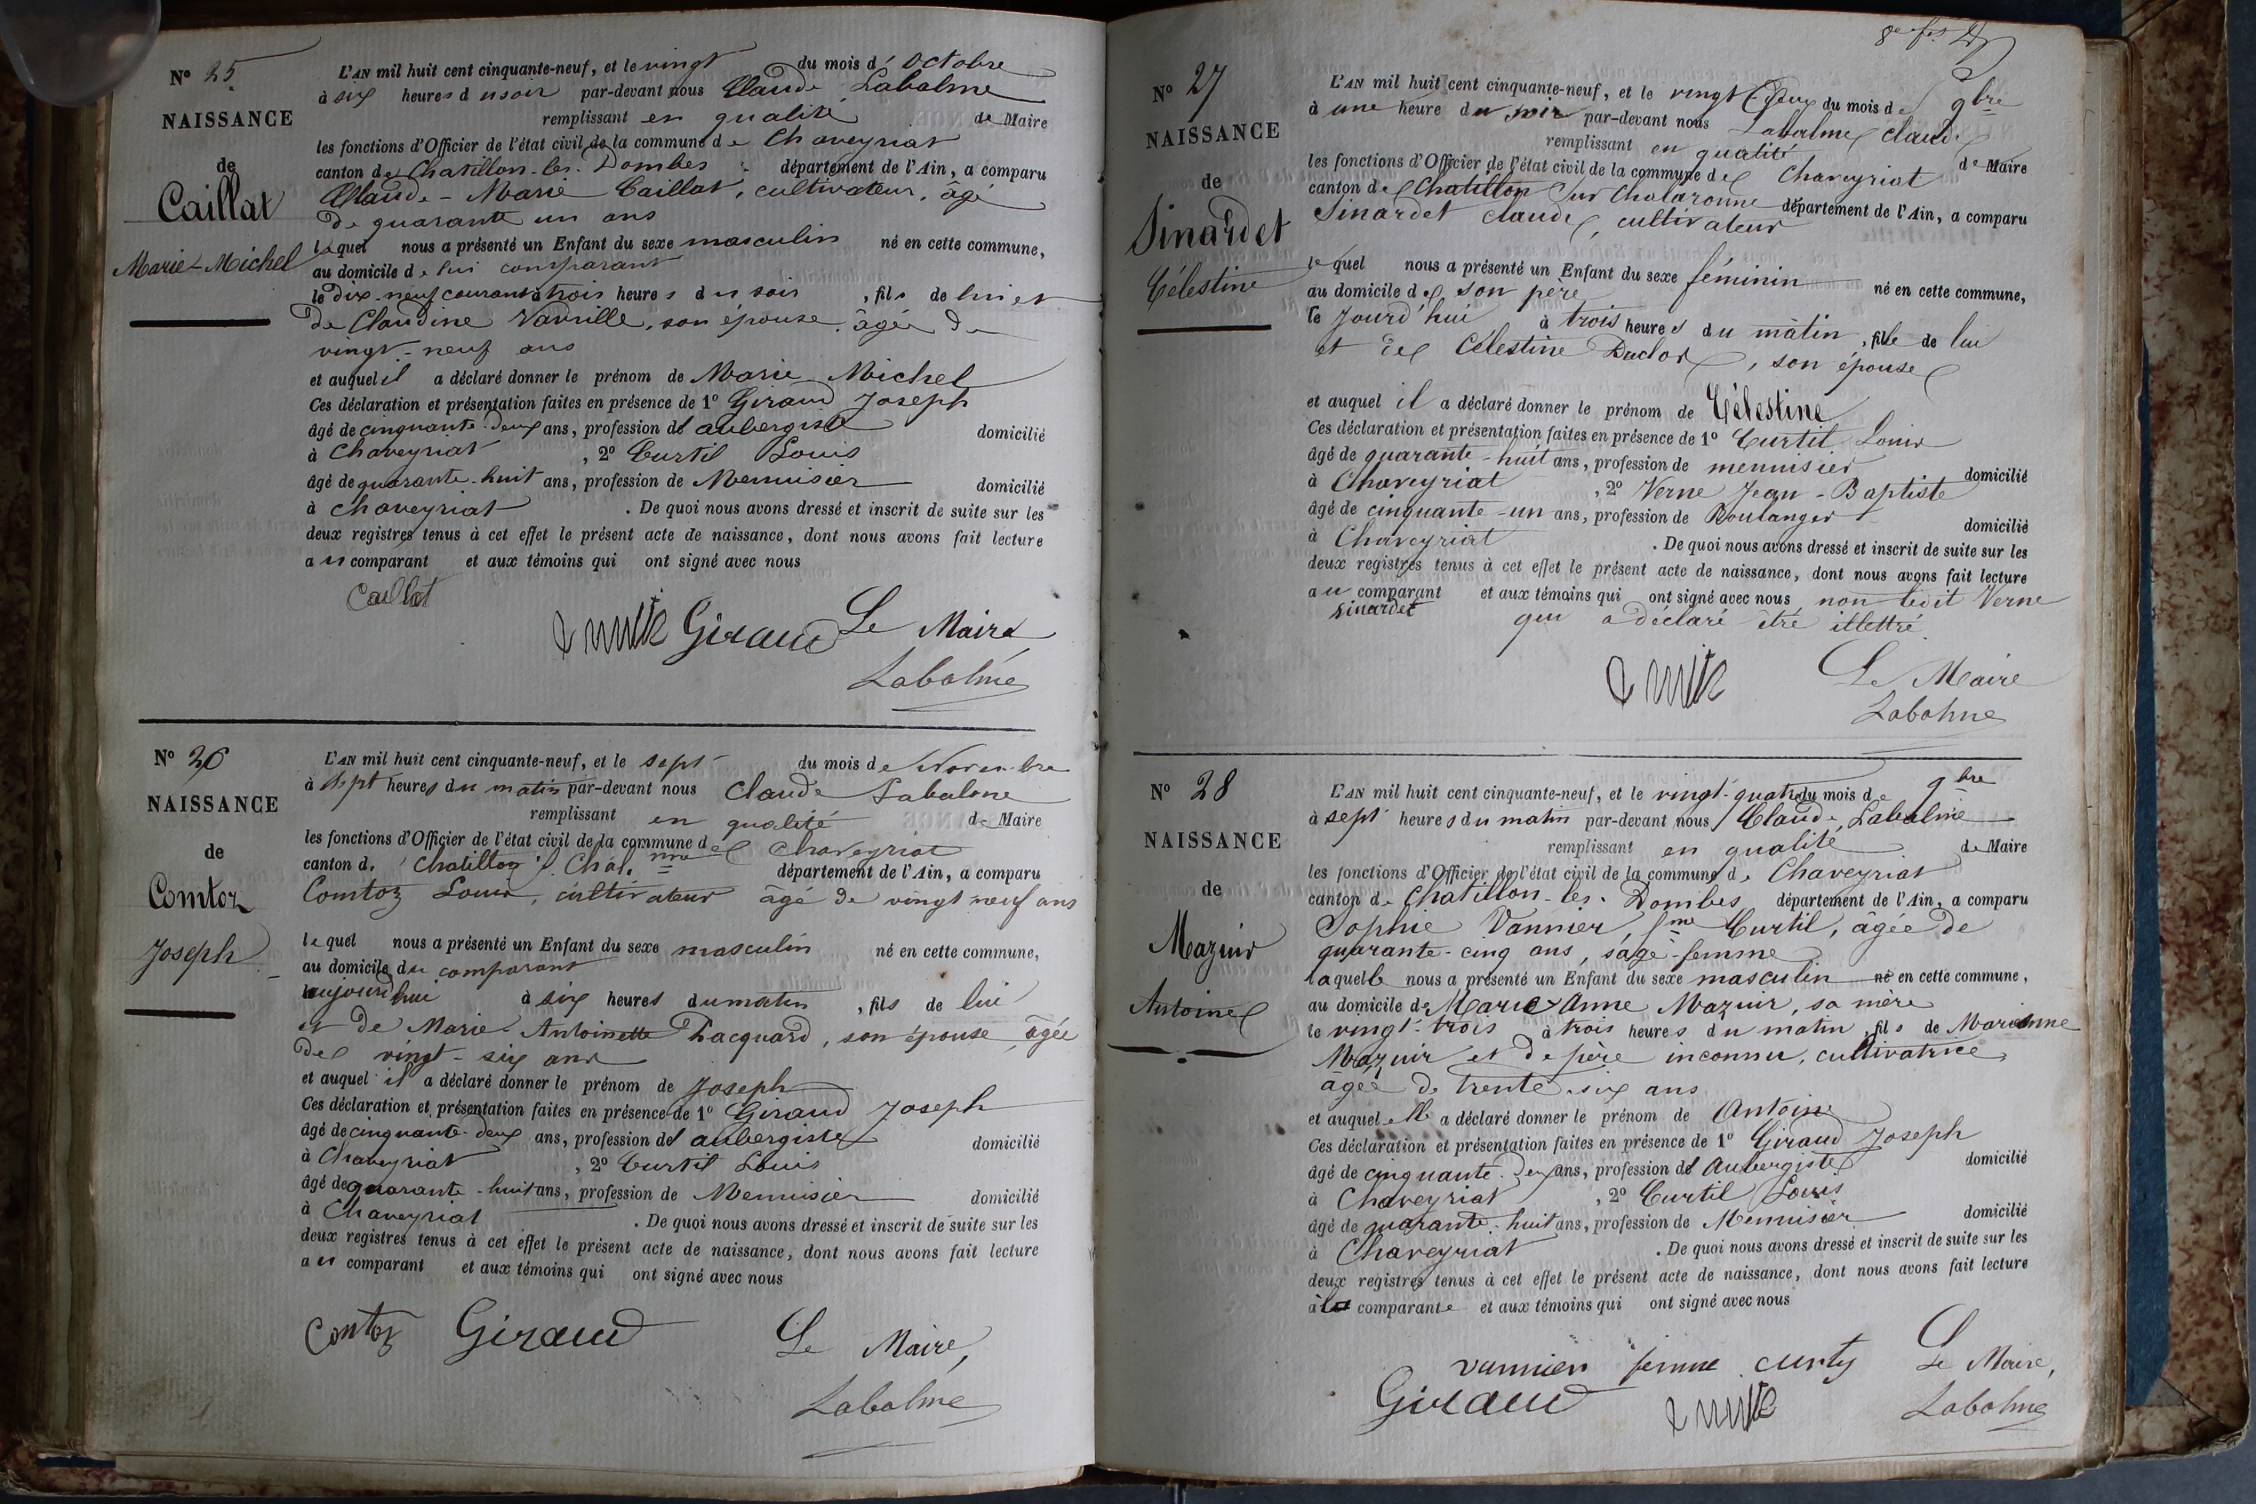 N° 25
NAISSANCE
de
Caillat
Marie-Michel
L'AN mil huit cent cinquante-neuf, et le vingt du mois d'Octobre
à six heures du soir par-devant nous Claude Labalme
remplissant en qualité de Maire
les fonctions d'Officier de l'état civil de la commune de Chaveyriat
canton de Chatillon-les-Dombes département de l'Ain, a comparu
Claude-Marie Caillat, cultivateur, âgé
de quarante un ans
lequel nous a présenté un Enfant du sexe masculin né en cette commune,
au domicile de lui comparant
le dix-neuf courant à trois heures du soir, fils de lui et
de Claudine Vavrille, son épouse, âgée de
vingt-neuf ans
et auquel il a déclaré donner le prénom de Marie Michel
Ces déclaration et présentation faites en présence de 1° Giraud Joseph
âgé de cinquante-deux ans, profession de aubergiste domicilié
à Chaveyriat, 2° Curtil Louis
âgé de quarante-huit ans, profession de Menuisier domicilié
à Chaveyriat. De quoi nous avons dressé et inscrit de suite sur les
deux registres tenus à cet effet le présent acte de naissance, dont nous avons fait lecture
au comparant et aux témoins qui ont signé avec nous
Caillat
Giraud Le Maire
Labalme
N° 26
NAISSANCE
de
Comtoz
Joseph
L'AN mil huit cent cinquante-neuf, et le sept du mois de Novembre
à sept heures du matin par-devant nous Claude Labalme
remplissant en qualité de Maire
les fonctions d'Officier de l'état civil de la commune de Chaveyriat
canton de Chatillon s. Chal.nne département de l'Ain, a comparu
Comtoz Louis, cultivateur âgé de vingt neuf ans
lequel nous a présenté un Enfant du sexe masculin né en cette commune,
au domicile du comparant
aujourd'hui à six heures du matin, fils de lui
et de Marie-Antoinette Pacquard, son épouse, âgée
de vingt-six ans
et auquel il a déclaré donner le prénom de Joseph
Ces déclaration et présentation faites en présence de 1° Giraud Joseph
âgé de cinquante-deux ans, profession de aubergiste domicilié
à Chaveyriat, 2° Curtil Louis
âgé de quarante-huit ans, profession de Menuisier domicilié
à Chaveyriat. De quoi nous avons dressé et inscrit de suite sur les
deux registres tenus à cet effet le présent acte de naissance, dont nous avons fait lecture
au comparant et aux témoins qui ont signé avec nous
Contoz Giraud Le Maire,
Labalme
N° 27
NAISSANCE
de
Sinardet
Célestine
L'AN mil huit cent cinquante-neuf, et le vingt-deux du mois de 9bre
à une heure du soir par-devant nous Labalme Claude
remplissant en qualité de Maire
les fonctions d'Officier de l'état civil de la commune de Chaveyriat
canton de Chatillon sur Chalaronne département de l'Ain, a comparu
Sinardet Claude, cultivateur
lequel nous a présenté un Enfant du sexe féminin né en cette commune,
au domicile de son père
le jourd'hui à trois heures du mâtin, fille de lui
et de Célestine Duclos, son épouse
et auquel il a déclaré donner le prénom de Célestine
Ces déclaration et présentation faites en présence de 1° Curtil Louis
âgé de quarante-huit ans, profession de menuisier domicilié
à Chaveyriat, 2° Verne Jean-Baptiste
âgé de cinquante-un ans, profession de Boulanger domicilié
à Chaveyriat. De quoi nous avons dressé et inscrit de suite sur les
deux registres tenus à cet effet le présent acte de naissance, dont nous avons fait lecture
au comparant et aux témoins qui ont signé avec nous non ledit Verne
sinardet qui a déclaré être illettré.
Le Maire
Labalme
N° 28
NAISSANCE
de
Mazuir
Antoine
L'AN mil huit cent cinquante-neuf, et le vingt-quatre du mois de 9bre
à sept heures du matin par-devant nous Claude Labalme
remplissant en qualité de Maire
les fonctions d'Officier de l'état civil de la commune de Chaveyriat
canton de Chatillon-les-Dombes département de l'Ain, a comparu
Sophie Vannier, fme Curtil, âgée de
quarante-cinq ans, sage-femme
laquelle nous a présenté un Enfant du sexe masculin né en cette commune,
au domicile de Marie Anne Mazuir, sa mère
le vingt-trois à trois heures du matin, fils de Marianne
Mazuir et de père inconnu, cultivatrice,
âgée de trente-six ans
et auquel elle a déclaré donner le prénom de Antoine
Ces déclaration et présentation faites en présence de 1° Giraud Joseph
âgé de cinquante-deux ans, profession de Aubergiste domicilié
à Chaveyriat, 2° Curtil Louis
âgé de quarante-huit ans, profession de Menuisier domicilié
à Chaveyriat. De quoi nous avons dressé et inscrit de suite sur les
deux registres tenus à cet effet le présent acte de naissance, dont nous avons fait lecture
à la comparante et aux témoins qui ont signé avec nous
vannier femme curty Le Maire,
Giraud Labalme